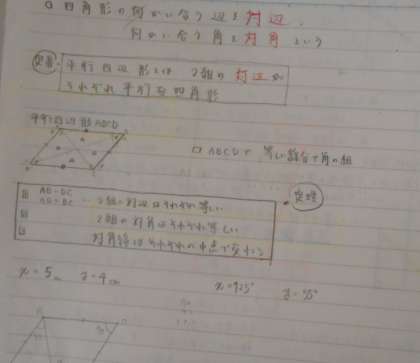 四角形の向かい合う辺を対辺、
向かい合う角を対角という
定義 平行四辺形とは 2組の対辺が
それぞれ平行な四角形
平行四辺形ABCD
□ABCDで、等しい
AB=DC
2組の対辺はそれぞれ等しい
定理
2組の対角はそれぞれ等しい
対角線はそれぞれの中点で交わる
x=5cm y=4cm